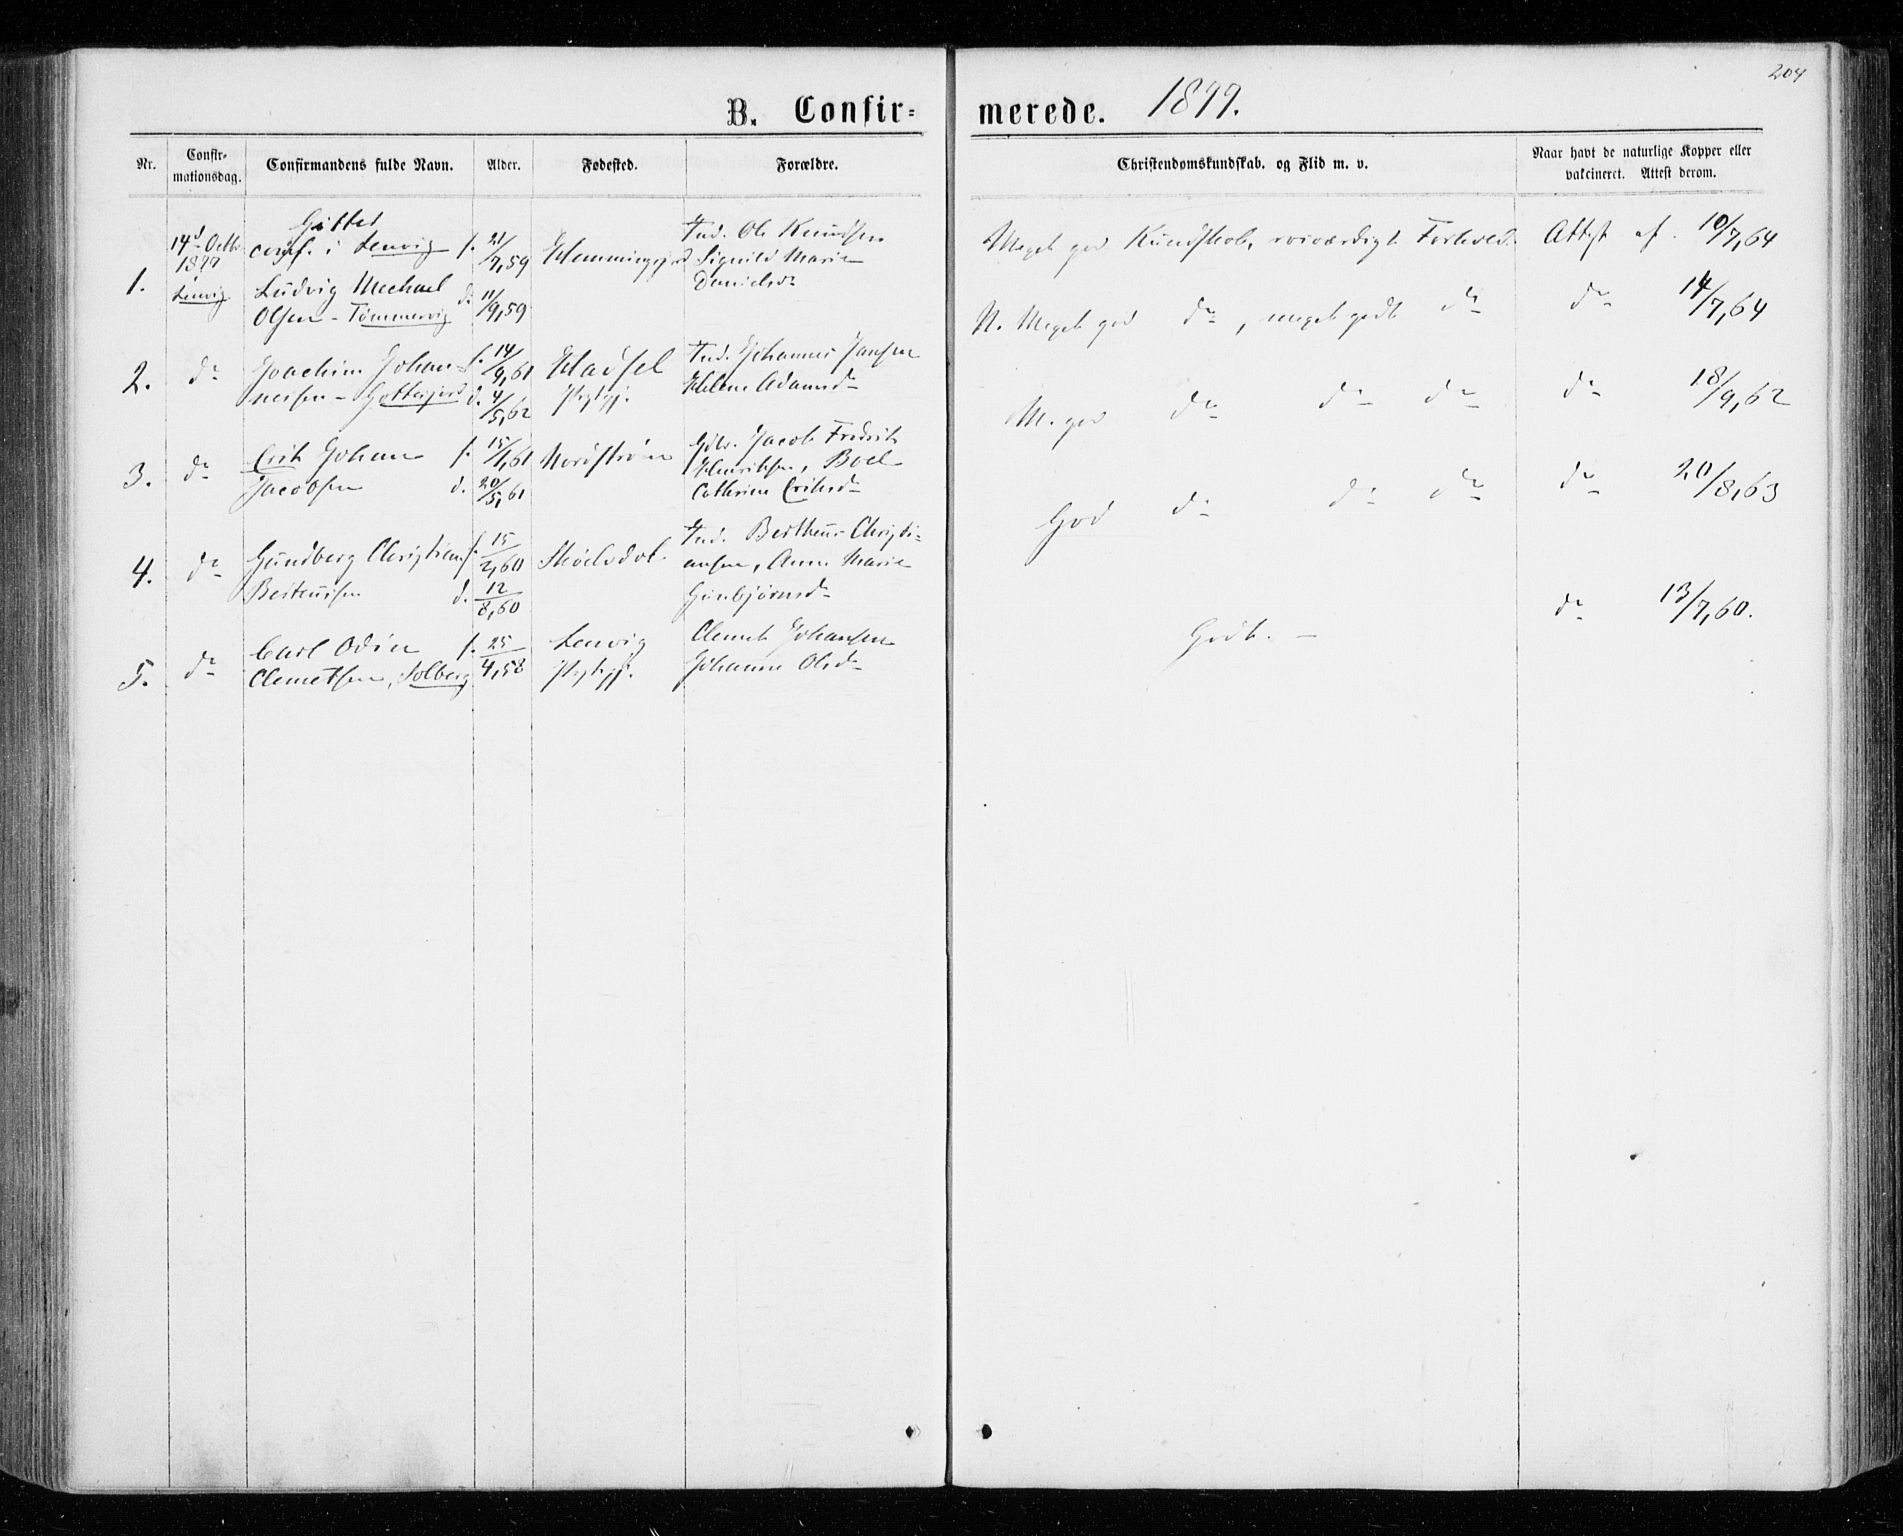 204
B. Confir-
merede. 1877.
Nr.
Confir-
mationsdag.
Confirmandens fulde Navn.
Alder.
Fødested.
Forældre.
Christendomskundskab. og Flid m. v.
Naar havt de naturlige Kopper eller
vakcineret. Attest derom.
Gutter
conf. i Lenvig
1.
14d Octbr
1877
Lenvig
Ludvig Mechael
Olsen - Tømmervig
f. 21/7,59
d. 11/9,59
Ind. Ole Knudsen
Signild Marie
Danielsd.
Meget god Kundskab, roesværdigt Forhold.
Attest af 10/7,64
2.
do
Joachim Johan-
nessen - Gottesjord
f. 14/9,61
d. 4/5,62
Hadsel
Prgtgj.
Ind. Johannes Jansen
Helene Adamsd.
N. Meget god do, meget godt do
do 14/7,64
3.
do
Erik Johan
Jacobsen
f. 15/1,61
d. 20/5,61
Nordstrøm
Gdbr. Jacob Fredrik
Henriksen, Boel
Cathrine Eriksd.
M. god do do do
do 18/9,62
4.
do
Gundberg Christian
Berteusen
f. 15/2,60
d. 12/8,60
Ind. Bertheus Christi-
ansen, Anne Marie
Gunbjørnsd.
God do do do
do 20/8,63
5.
do
Carl Odin
Clemetsen, Solberg
f. 25/4,58
Lenvig
Prgtgj.
Clemet Johansen
Johanna Olsd.
Godt. -
do 13/7,60.